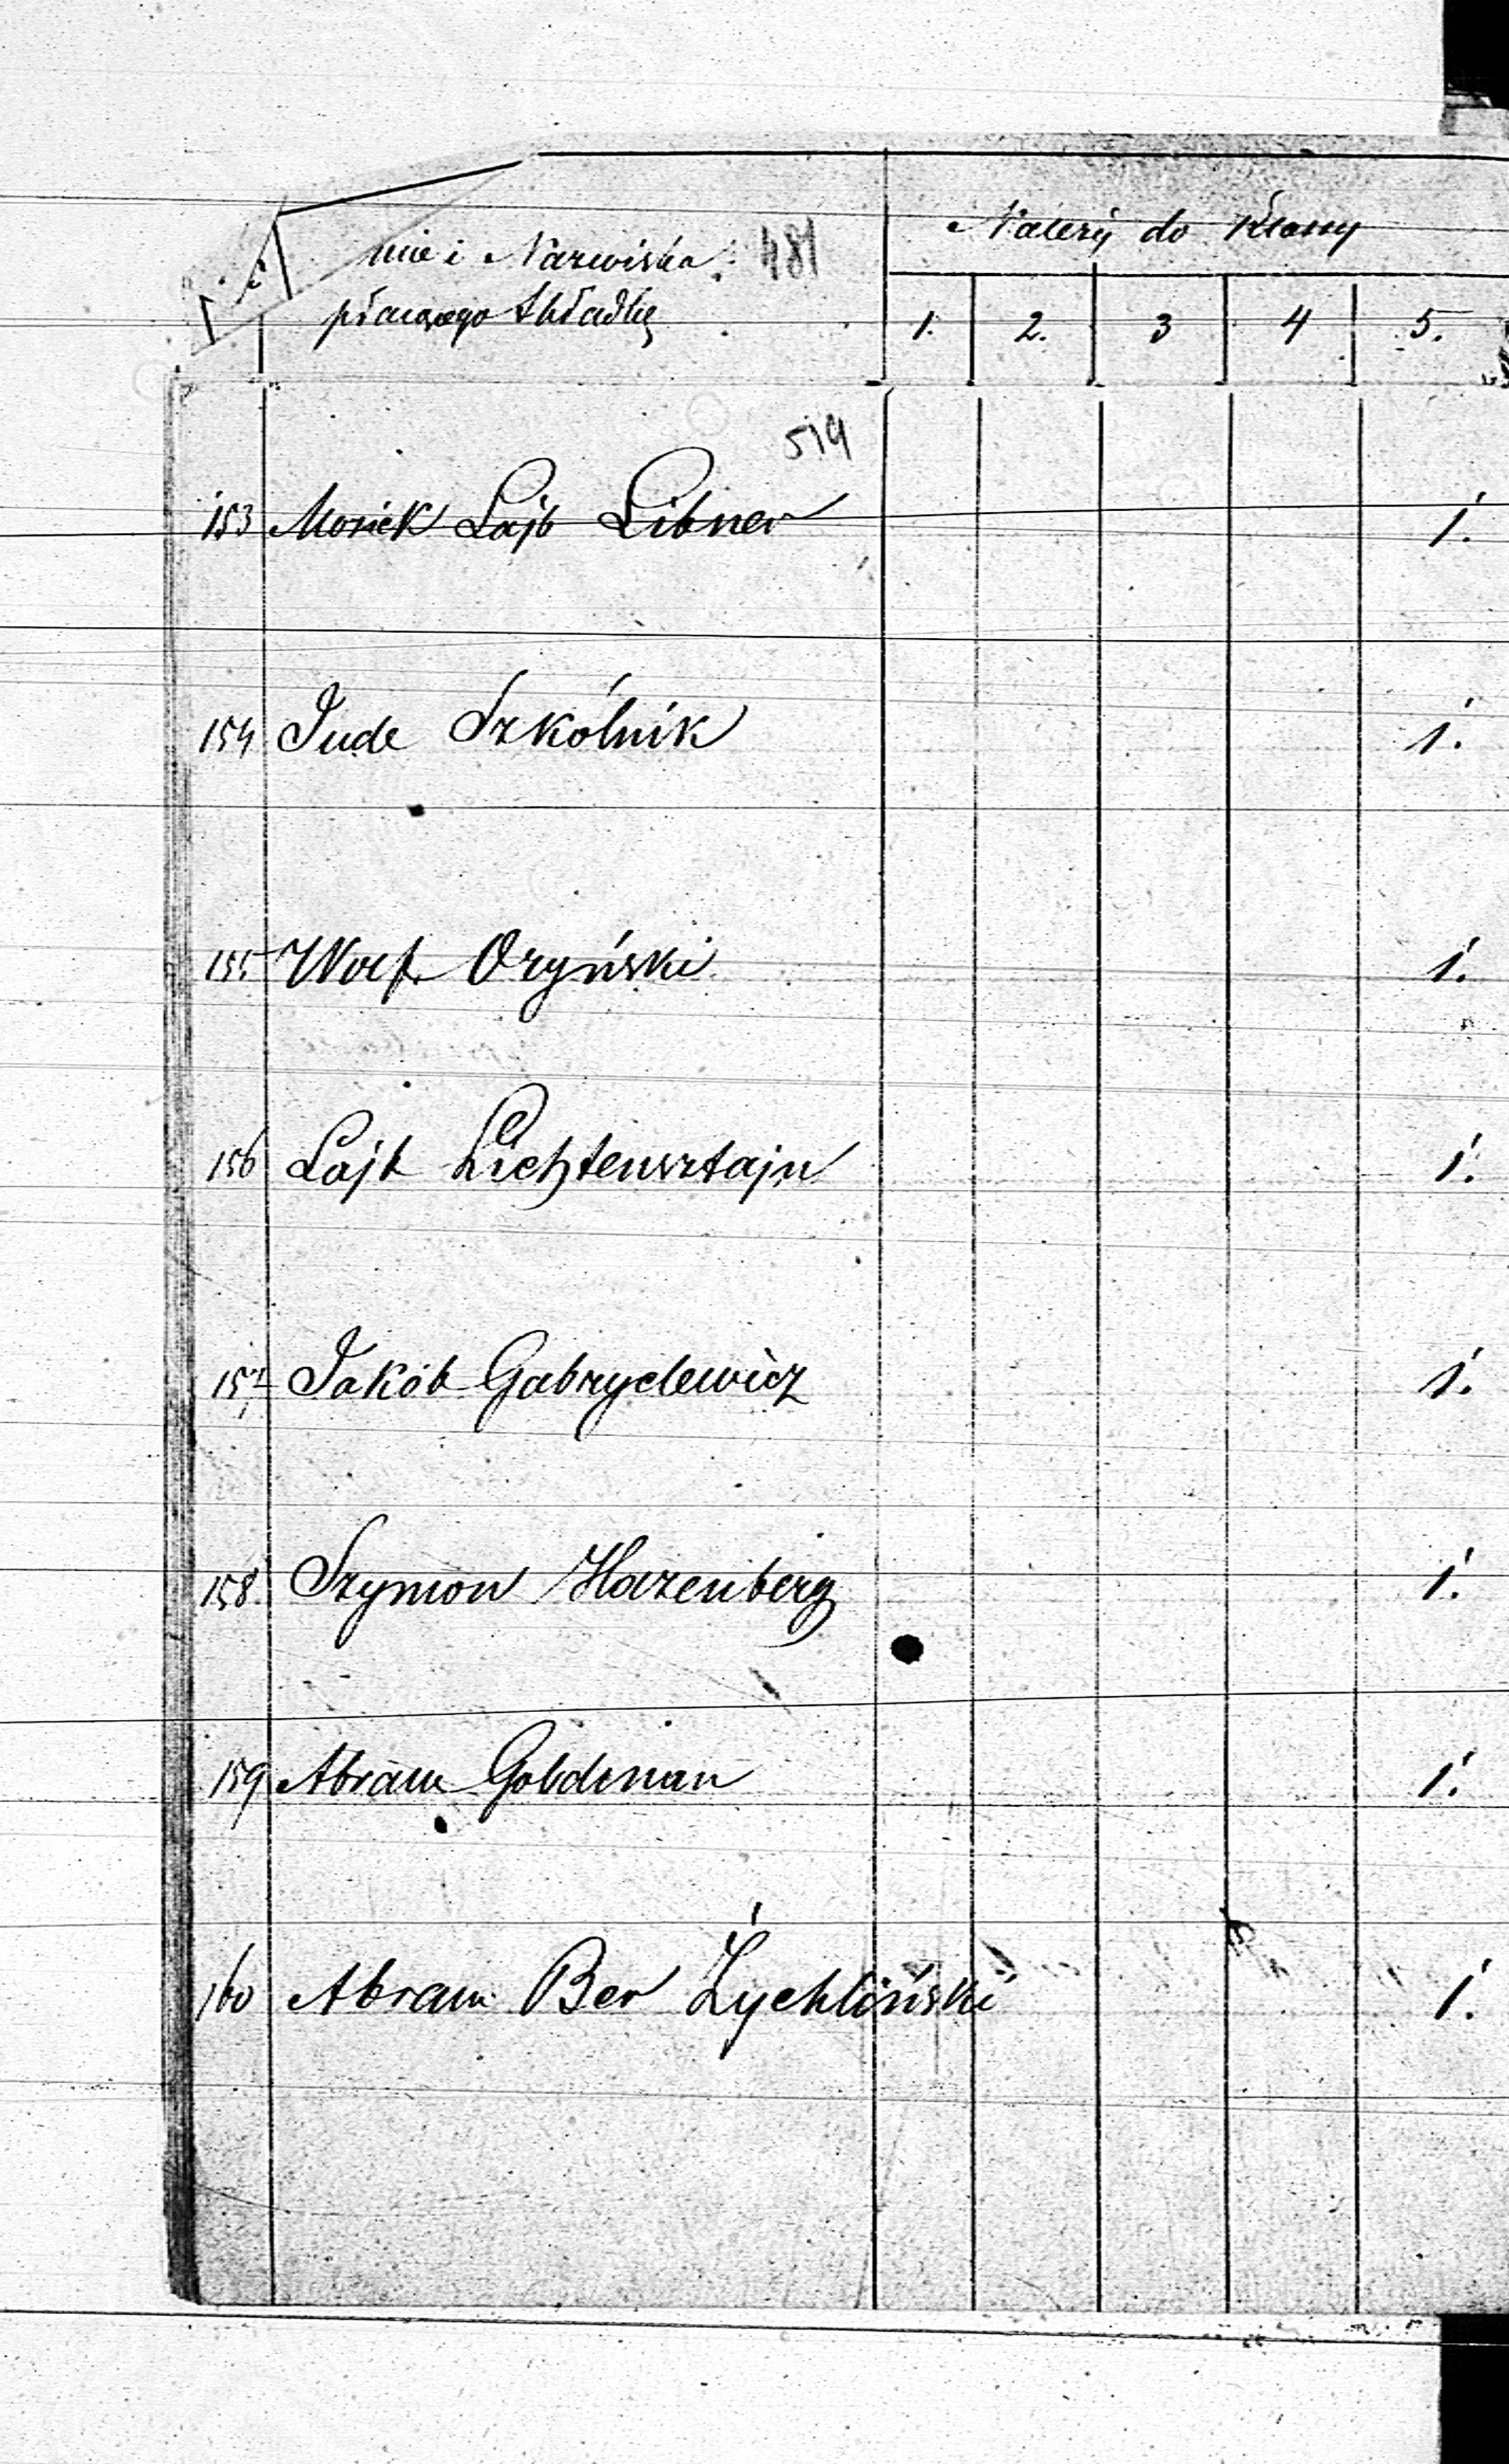 mie i Nazwiska 481
płacącego Składkę
Należy do Klassy
1. 2. 3 4 5.
519
153 Mosiek Lajb Libner 1.
154 Jude Szkólnik 1.
155 Wolf Oryński 1.
156 Lajb Lichtensztajn 1.
157 Jakób Gabryelewicz 1.
158. Szymon Hazenberg 1.
159 Abram Goldman 1.
160 Abram Ber Żychliński 1.